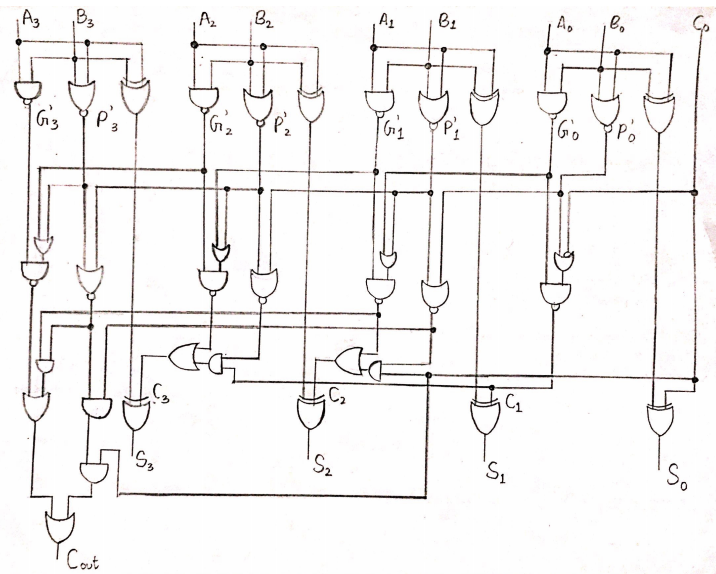 A3 B3 A2 B2 A1 B1 A0 B0 C0
G'3 P'3 G'2 P'2 G'1 P'1 G'0 P'0
C3 C2 C1
S3 S2 S1 S0
Cout